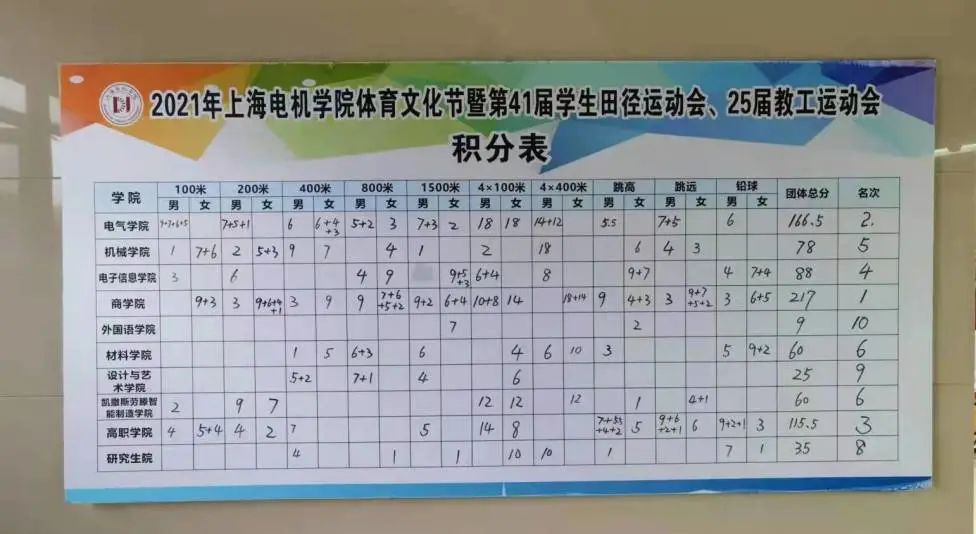 2021年上海电机学院体育文化节暨第41届学生田径运动会、25届教工运动会
积分表
学院 100米 200米 400米 800米 1500米 4×100米 4×400米 跳高 跳远 铅球 团体总分 名次
男 女 男 女 男 女 男 女 男 女 男 女 男 女 男 女 男 女 男 女
电气学院 9+7+6+5 7+5+1 6 6+4+3 5+2 3 7+3 2 18 18 14+12 5.5 7+5 6 166.5 2.
机械学院 1 7+6 2 5+3 9 7 4 1 2 18 6 4 3 78 5
电子信息学院 3 6 4 9 9+5+3 6+4 8 9+7 4 7+4 88 4
商学院 9+3 3 9+6+4+1 3 9 9 7+6+5+2 9+2 6+4 10+8 14 18+14 9 4+3 3 9+7+5+2 3 6+5 217 1
外国语学院 7 2 9 10
材料学院 1 5 6+3 6 4 6 10 3 5 9+2 60 6
设计与艺术学院 5+2 7+1 4 6 25 9
凯撒斯劳滕智能制造学院 2 9 7 12 12 12 1 4+1 60 6
高职学院 4 5+4 4 2 7 5 14 8 7+5.5+4+2 5 9+6+2+1 6 9+2+1 3 115.5 3
研究生院 4 1 1 10 10 1 7 1 35 8